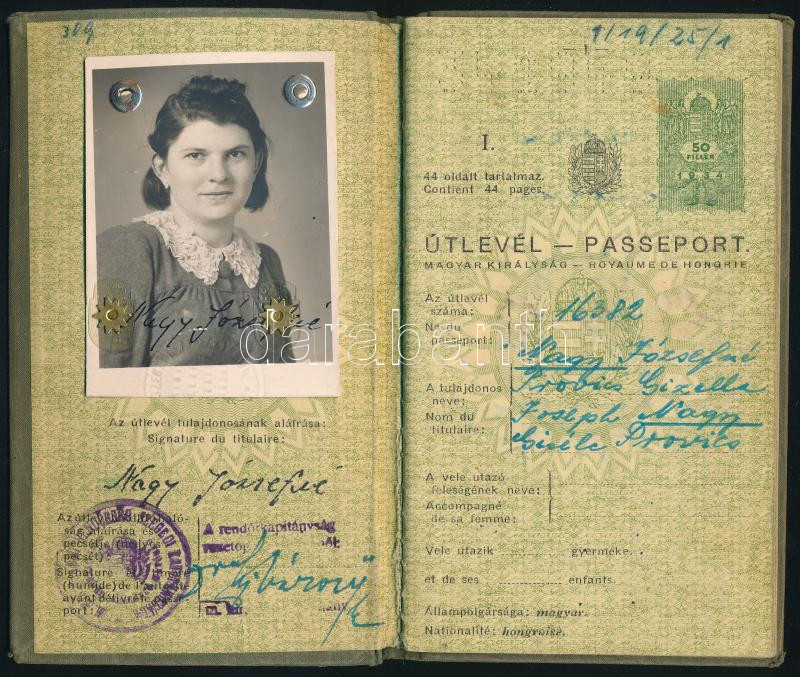 389
Nagy Józsefné
Az útlevél tulajdonosának aláírása:
Signature du titulaire:
Nagy Józsefné
A rendőrkapitányság
pecsétje
pecsét)
Signature
(humide) de l'autorité
ayant délivré le passe-
port:
1/19/25/1
I.
44 oldalt tartalmaz.
Contient 44 pages.
50
FILLÉR
1934
ÚTLEVÉL — PASSEPORT.
MAGYAR KIRÁLYSÁG — ROYAUME DE HONGRIE
Az útlevél
száma:
No du
passeport:
16382
A tulajdonos
neve:
Nom du
titulaire:
Nagy Józsefné
Provics Gizella
Joseph Nagy
Gisèle Provics
A vele utazó
feleségének neve:
Accompagné
de sa femme:
Vele utazik gyermeke.
et de ses enfants.
Állampolgársága: magyar.
Nationalité: hongroise.
darabanth